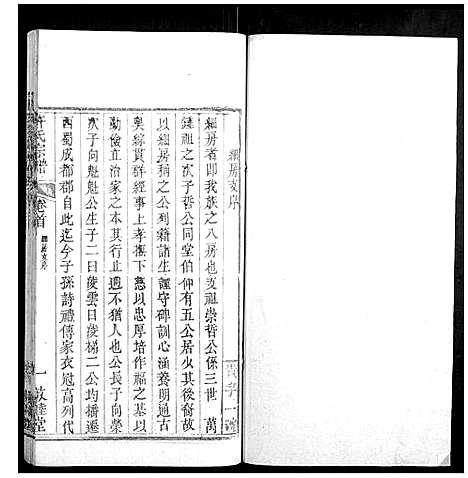 細房支序
細房者即我族之八房也支祖崇哲公係三世萬
鍾祖之次子哲公同堂伯仲有五公居少其後裔故
以細房稱之公列籍諸生謹守碑訓心涵養明通古
矣綜貫群經事上孝撫下慈以忠厚培作福之基以
勤儉直治家之本其行止迥不猶人也公長子向榮
次子向魁魁公生子二曰凌雲曰凌梯二公均播遷
西蜀成都郡自此迄今子孫詩禮傳家衣冠高列代
許氏宗譜
卷首
細房支序
一
敦睦堂